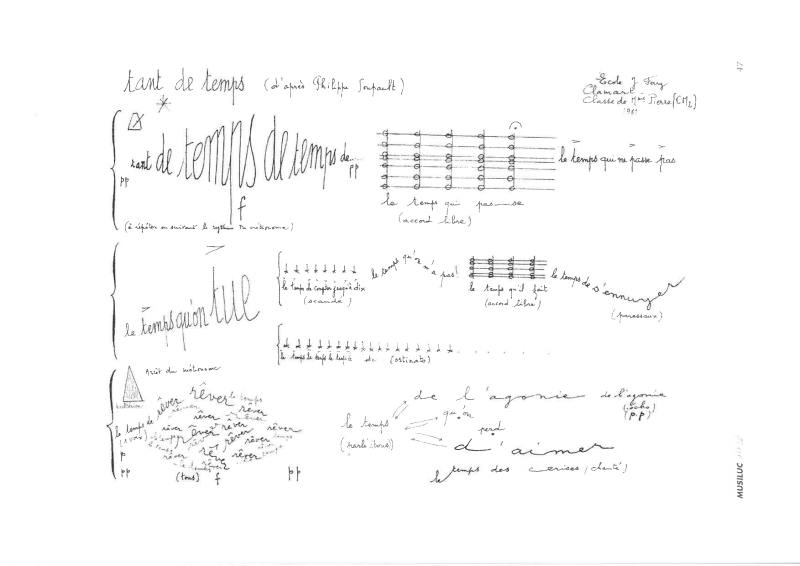 47
tant de temps (d'après Philippe Soupault)
Ecole J. Fay
Clamart
Classe de Mme Pierre (CM2)
1981
tant de temps de temps de...
pp
f
pp
le temps qui passe
(accord libre)
le temps qui ne passe pas
(à répéter en suivant le rythme du métronome)
le temps qu'on tue
le temps de compter jusqu'à dix
(scandé)
le temps qu'on n'a pas!
le temps qu'il fait
(accord libre)
le temps de s'ennuyer
(paresseux)
le temps le temps le temps etc (ostinato)
Arrêt du métronome
le temps de rêver rêver le temps
rêver rêver rêver
rêver rêver rêver
rêver rêver rêver
rêver rêver rêver
(1 voix)
p
pp
(tous) f
pp
le temps
(parlé: tous)
qu'on
perd
de l'agonie de l'agonie
(écho)
(pp)
d'aimer
le temps des cerises (chanté)
MUSILUC